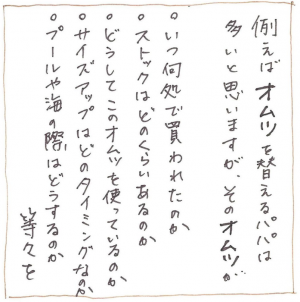 例えばオムツを替えるパパは
多いと思いますが、そのオムツが
○いつ何処で買われたのか
○ストックはどのくらいあるのか
○どうしてこのオムツを使っているのか
○サイズアップはどのタイミングなのか
○プールや海の際はどうするのか
等々を